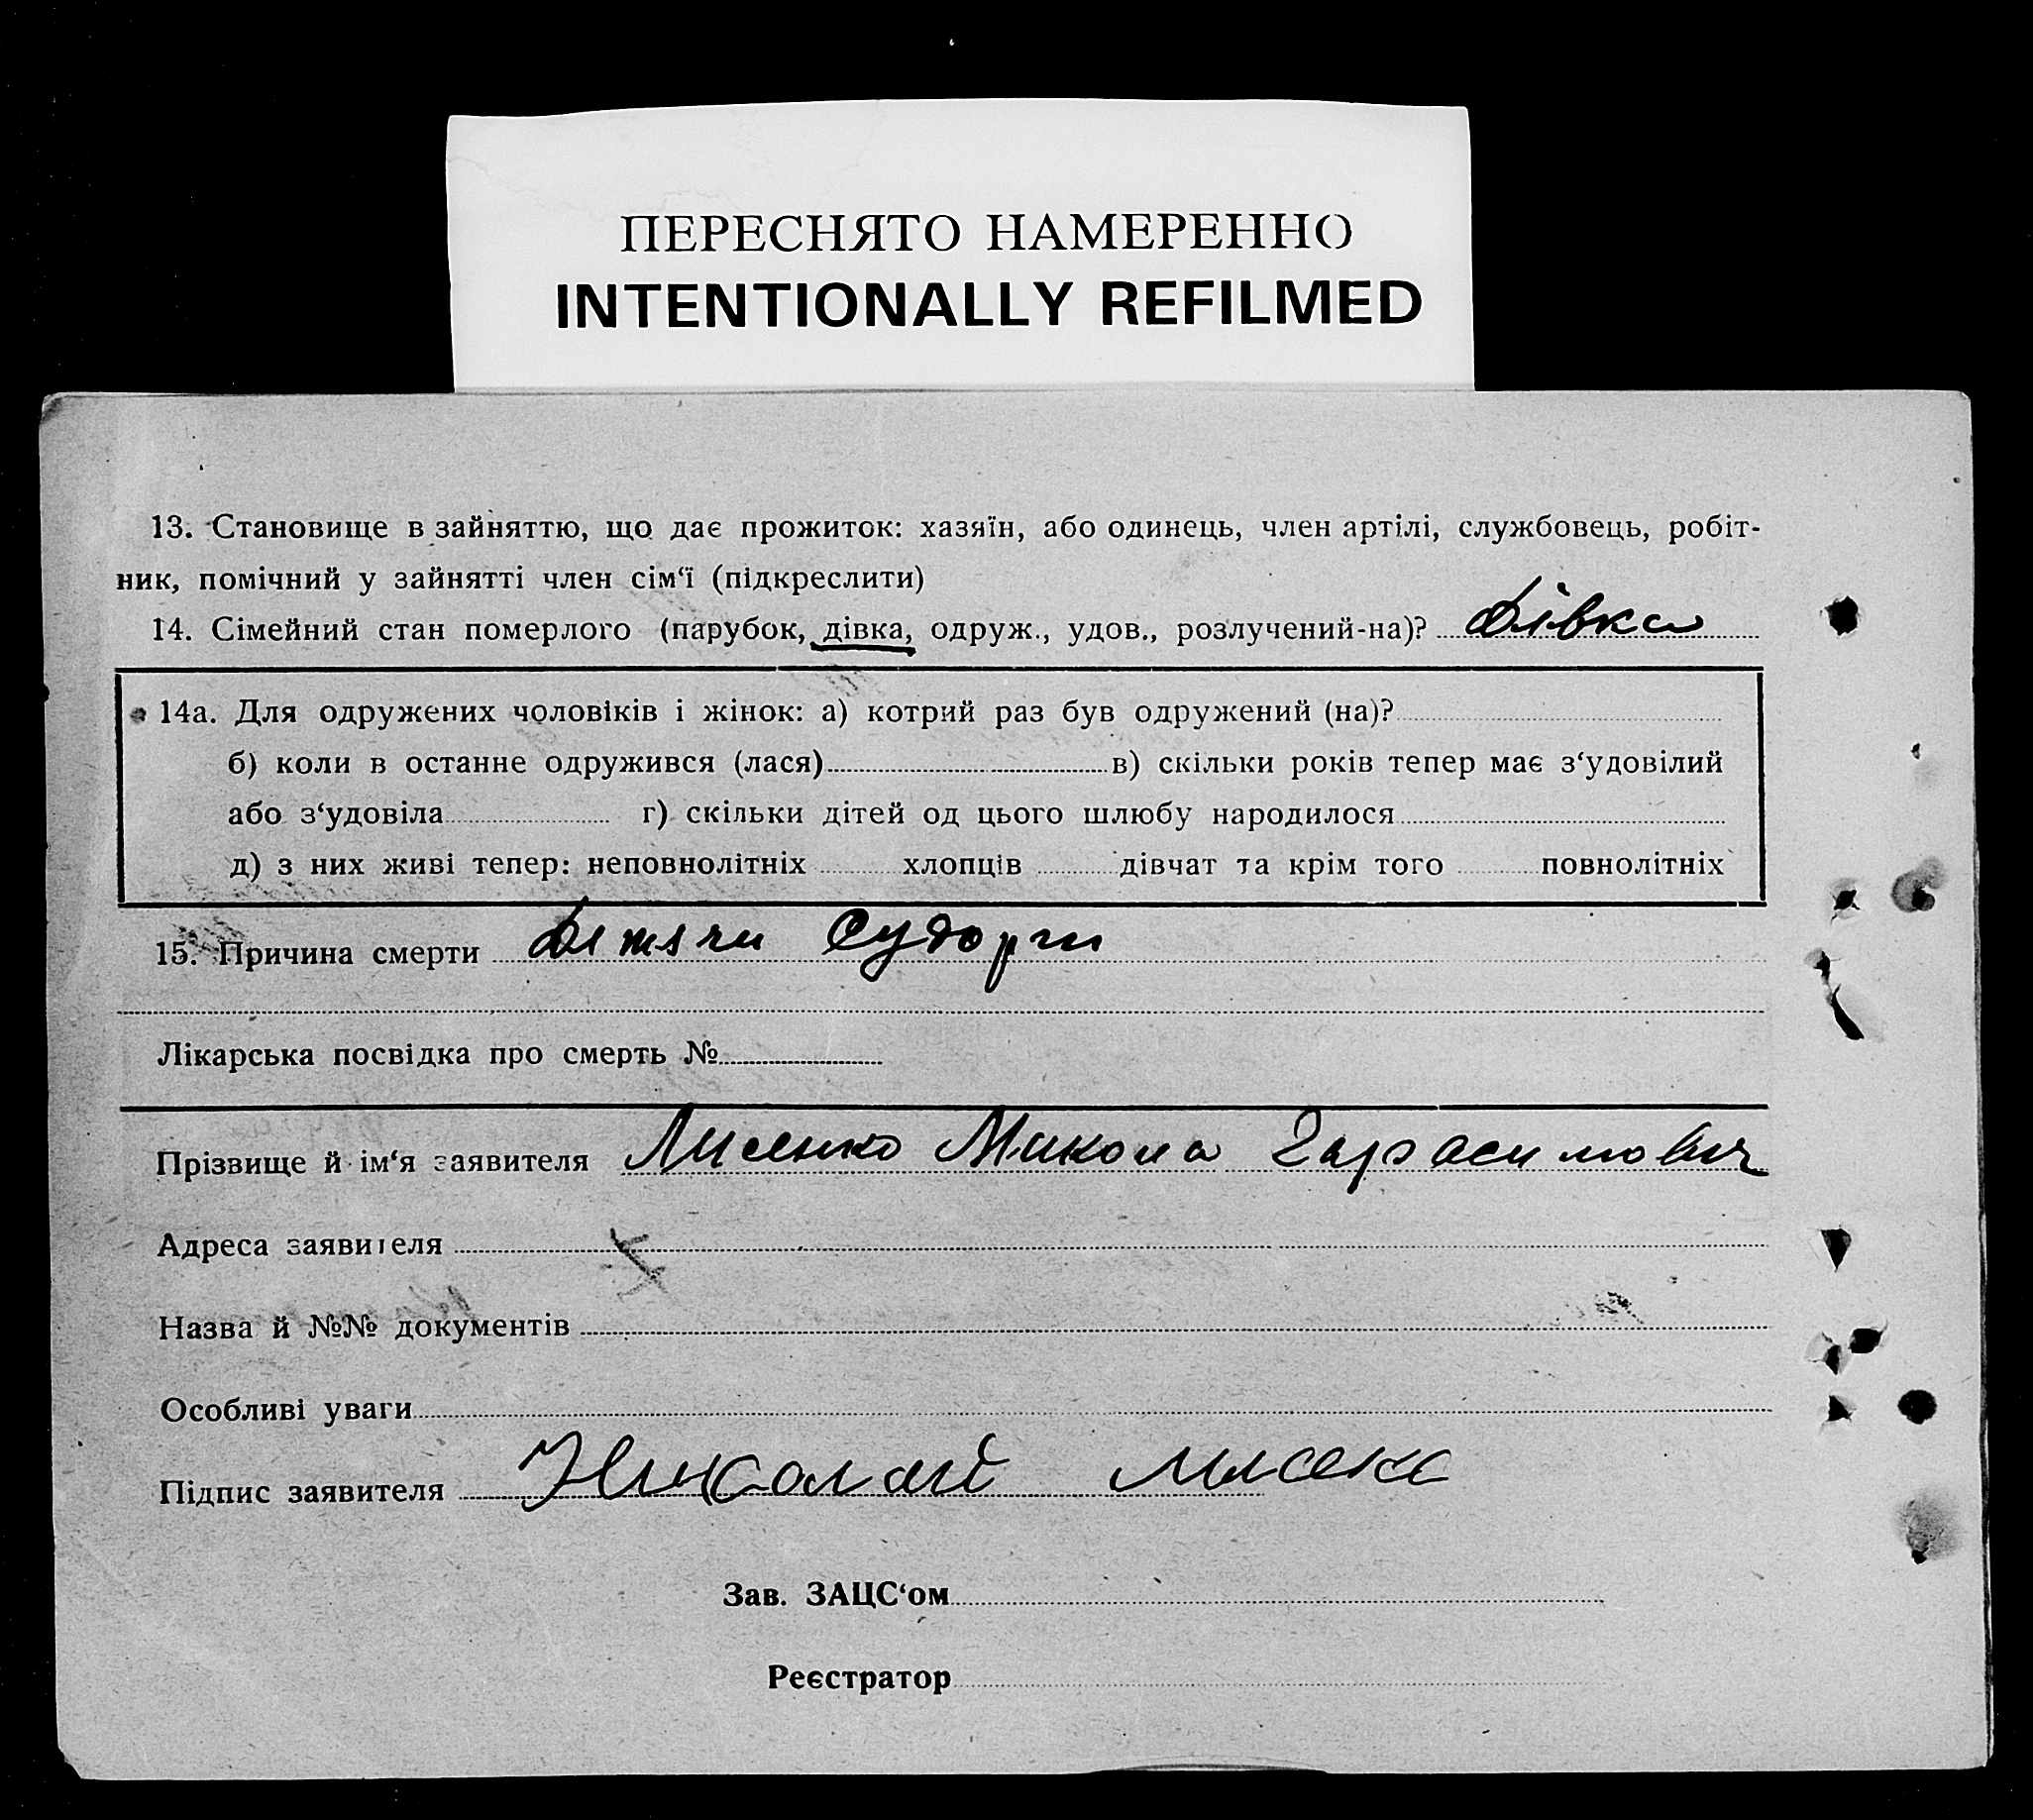 ПЕРЕСНЯТО НАМЕРЕННО
INTENTIONALLY REFILMED
13. Становище в зайняттю, що дає прожиток: хазяїн, або одинець, член артілі, службовець, робіт-
ник, помічний у зайнятті член сім‘ї (підкреслити)
14. Сімейний стан померлого (парубок, дівка, одруж., удов., розлучений-на)? Дівка
14а. Для одружених чоловіків і жінок: а) котрий раз був одружений (на)?
б) коли в останне одружився (лася) в) скільки років тепер має з‘удовілий
або з‘удовіла г) скільки дітей од цього шлюбу народилося
д) з них живі тепер: неповнолітніх хлопців дівчат та крім того повнолітніх
15. Причина смерти Дитячи Судорги
Лікарська посвідка про смерть №
Прізвище й ім‘я заявителя Лисенко Микола Гарасимович
Адреса заявителя
Назва й №№ документів
Особливі уваги
Підпис заявителя Николай
Зав. ЗАЦС‘ом
Реєстратор